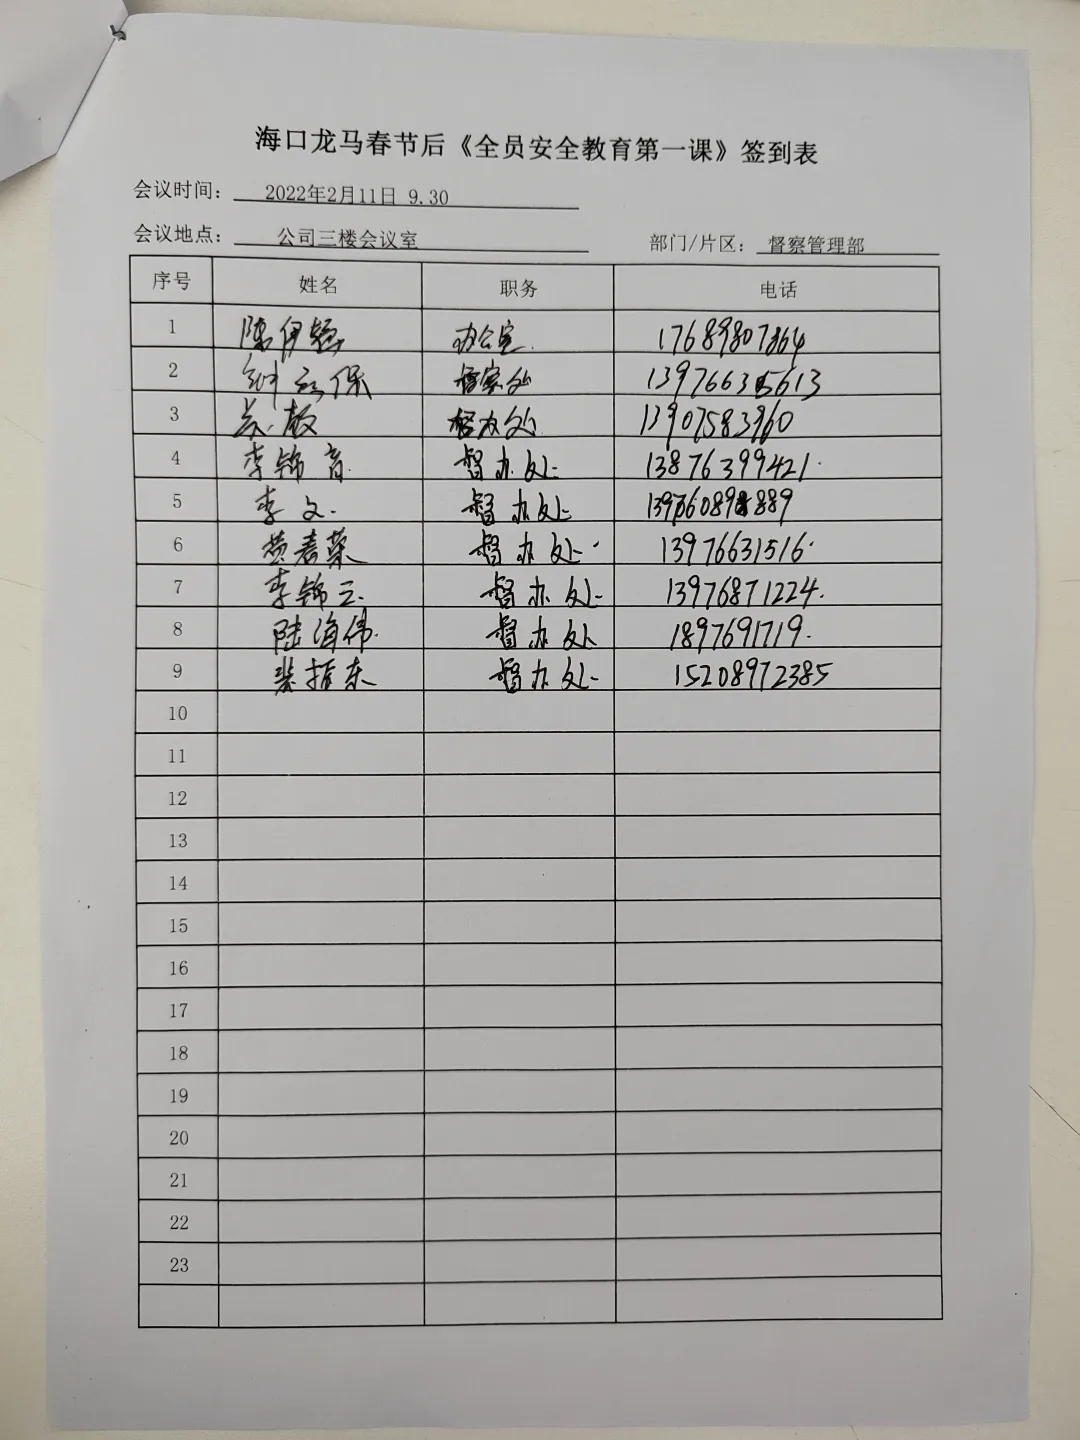 海口龙马春节后《全员安全教育第一课》签到表
会议时间： 2022年2月11日 9.30
会议地点： 公司三楼会议室 部门/片区： 督察管理部
序号 姓名 职务 电话
1 陈伊 办公室. 17689807864
2 钟 保 督察处 13976635613
3 督办处 13907583960
4 李锦育. 督办处 13876399421.
5 李文. 督办处 889
6 黄春荣 督办处 13976631516.
7 李锦云. 督办处 13976871224.
8 陆海伟. 督办处 1897691719.
9 裴振东 督办处 15208972385
10
11
12
13
14
15
16
17
18
19
20
21
22
23